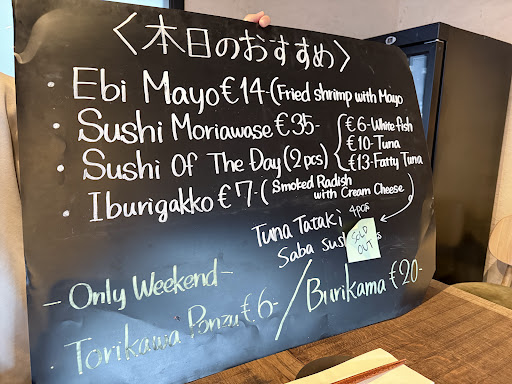 〈本日のおすすめ〉
・Ebi Mayo €14-(Fried shrimp with Mayo
・Sushi Moriawase €35-
・Sushi Of The Day (2pcs)
€6-White fish
€10-Tuna
€13-Fatty Tuna
・Iburigakko €7-(Smoked Radish with Cream Cheese)
Tuna Tataki 4pcs
Saba sus
SOLD OUT
-Only Weekend-
・Torikawa Ponzu €6- / Burikama €20-